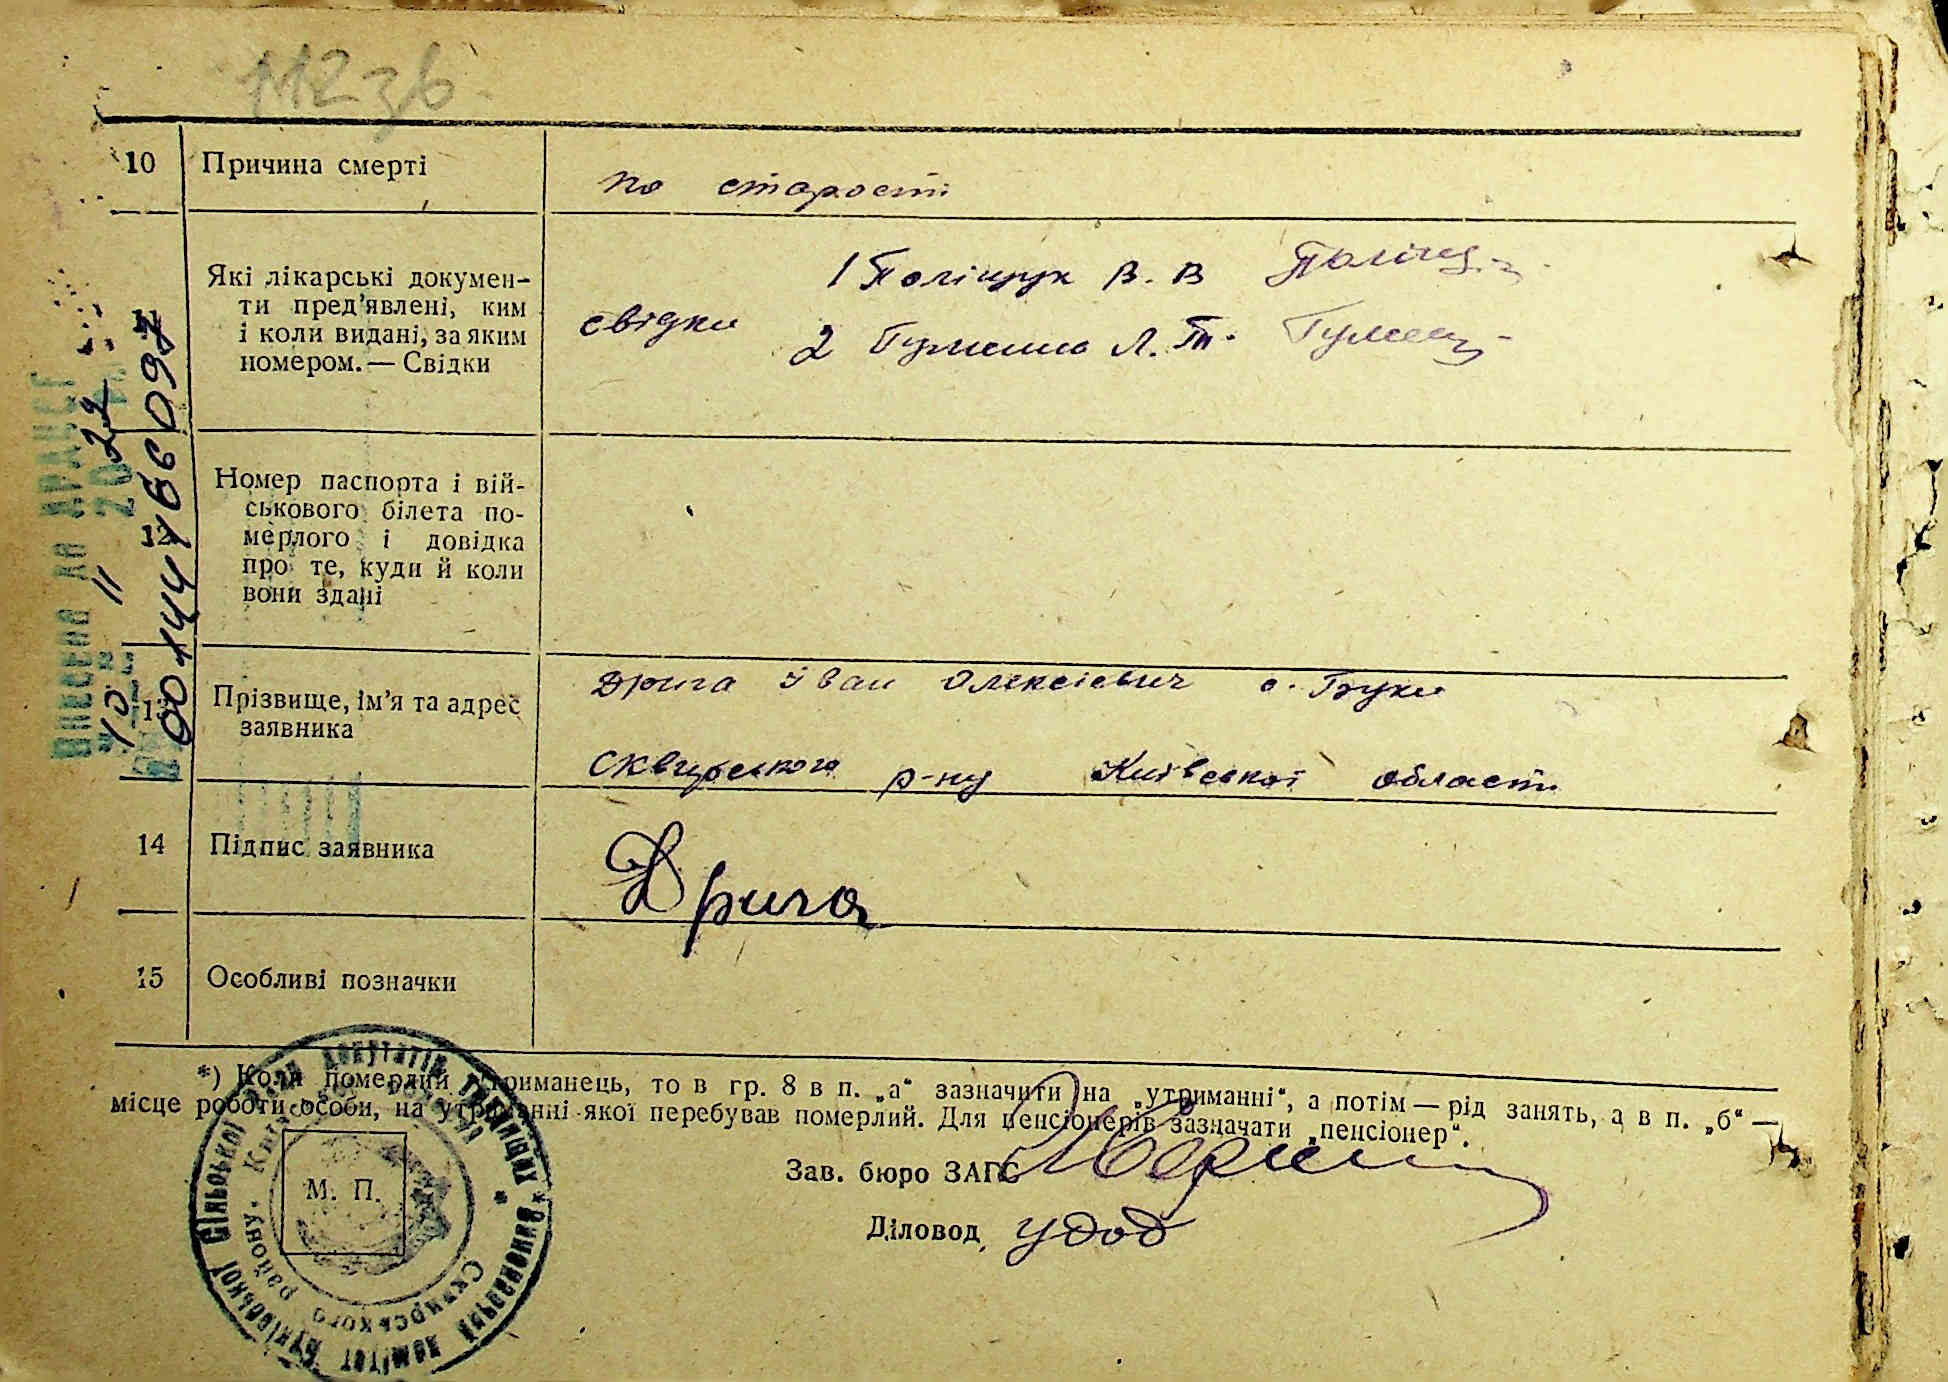 112 зв.
10 Причина смерті
по старості
Які лікарські докумен-
ти пред'явлені, ким
і коли видані, за яким
номером. — Свідки
1 Поліщук В. В
свідки
2 Гуменна Л. Т.
12
Номер паспорта і вій-
ськового білета по-
мерлого і довідка
про те, куди й коли
вони здані
Прізвище, ім'я та адрес
заявника
Дрига Іван Олексієвич с. Буки
Сквирського р-ну Київської области
14 Підпис заявника
Дрига
15 Особливі позначки
*) Коли померлий утриманець, то в гр. 8 в п. „а“ зазначити на „утриманні“, а потім — рід занять, а в п. „б“ —
місце роботи особи, на утриманні якої перебував померлий. Для пенсіонерів зазначати „пенсіонер“.
Зав. бюро ЗАГС
М. П.
Діловод Удод
Виконавчий комітет Буківської Сільської Ради депутатів трудящих
Сквирського району